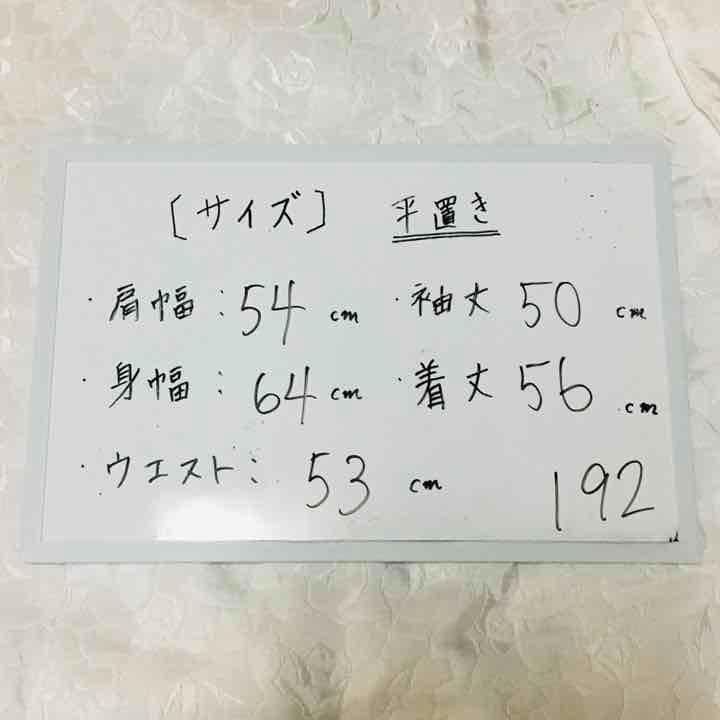 [サイズ] 平置き
・肩幅:54 cm ・袖丈 50 cm
・身幅:64 cm ・着丈 56 cm
・ウエスト:53 cm
192